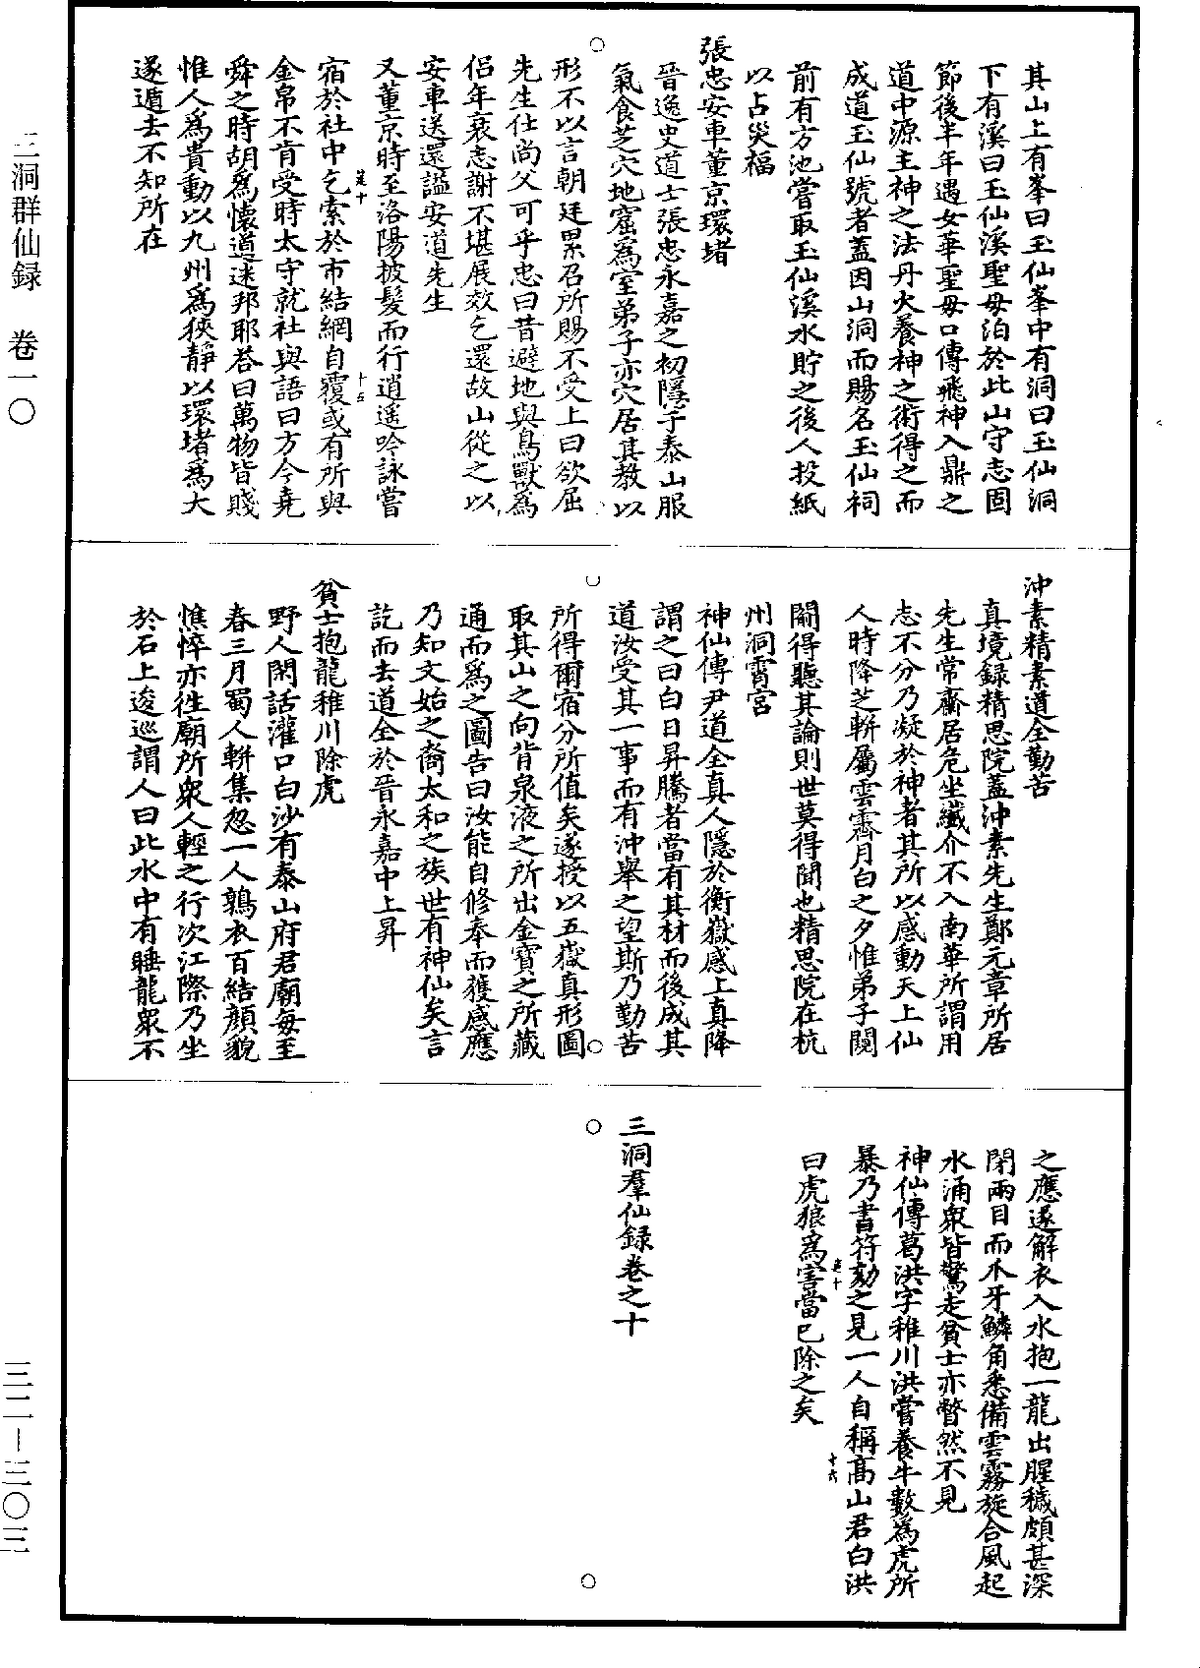 其山上有峯曰玉仙峯中有洞曰玉仙洞
下有溪曰玉仙溪聖母泊於此山守志固
節後半年遇女華聖母口傳飛神入鼎之
道中源主神之法丹火養神之術得之而
成道玉仙號者蓋因山洞而賜名玉仙祠
前有方池嘗取玉仙溪水貯之後人投紙
以占災福
張忠安車董京環堵
晉逸史道士張忠永嘉之初隱于泰山服
氣食芝穴地窟為室弟子亦穴居其教以
形不以言朝廷累召所賜不受上曰欲屈
先生仕尚父可乎忠曰昔避地與鳥獸為
侣年衰志謝不堪展效乞還故山從之以
安車送還謚安道先生
又董京時至洛陽披髮而行逍遥吟詠嘗
宿於社中乞索於市結網自覆或有所與
金帛不肯受時太守就社與語曰方今堯
舜之時胡為懷道迷邦耶荅曰萬物皆賤
惟人為貴動以九州為狹靜以環堵為大
遂遁去不知所在
沖素精素道全勤苦
真境録精思院蓋沖素先生鄭元章所居
先生常齋居危坐纖介不入南華所謂用
志不分乃凝於神者其所以感動天上仙
人時降芝輧屬雲霽月白之夕惟弟子闚
關得聽其論則世莫得聞也精思院在杭
州洞霄宮
神仙傳尹道全真人隱於衡嶽感上真降
謂之曰白日昇騰者當有其材而後成其
道汝受其一事而有沖舉之望斯乃勤苦
所得爾宿分所值矣遂授以五嶽真形圖
取其山之向背泉液之所出金寶之所藏
通而為之圖告曰汝能自修奉而獲感應
乃知文始之裔太和之族世有神仙矣言
訖而去道全於晉永嘉中上昇
貧士抱龍稚川除虎
野人閑話灌口白沙有泰山府君廟每至
春三月蜀人輧集忽一人鶉衣百結顔貌
憔悴亦往廟所衆人輕之行次江際乃坐
於石上逡巡謂人曰此水中有睡龍衆不
之應遂解衣入水抱一龍出腥穢頗甚深
閉兩目而爪牙鱗角悉備雲霧旋合風起
水涌衆皆驚走貧士亦瞥然不見
神仙傳葛洪字稚川洪嘗養牛數為虎所
暴乃書符劾之見一人自稱高山君白洪
曰虎狼為害當已除之矣
三洞羣仙録卷之十
十五
十六
三洞群仙録 卷一〇
三二—三〇三